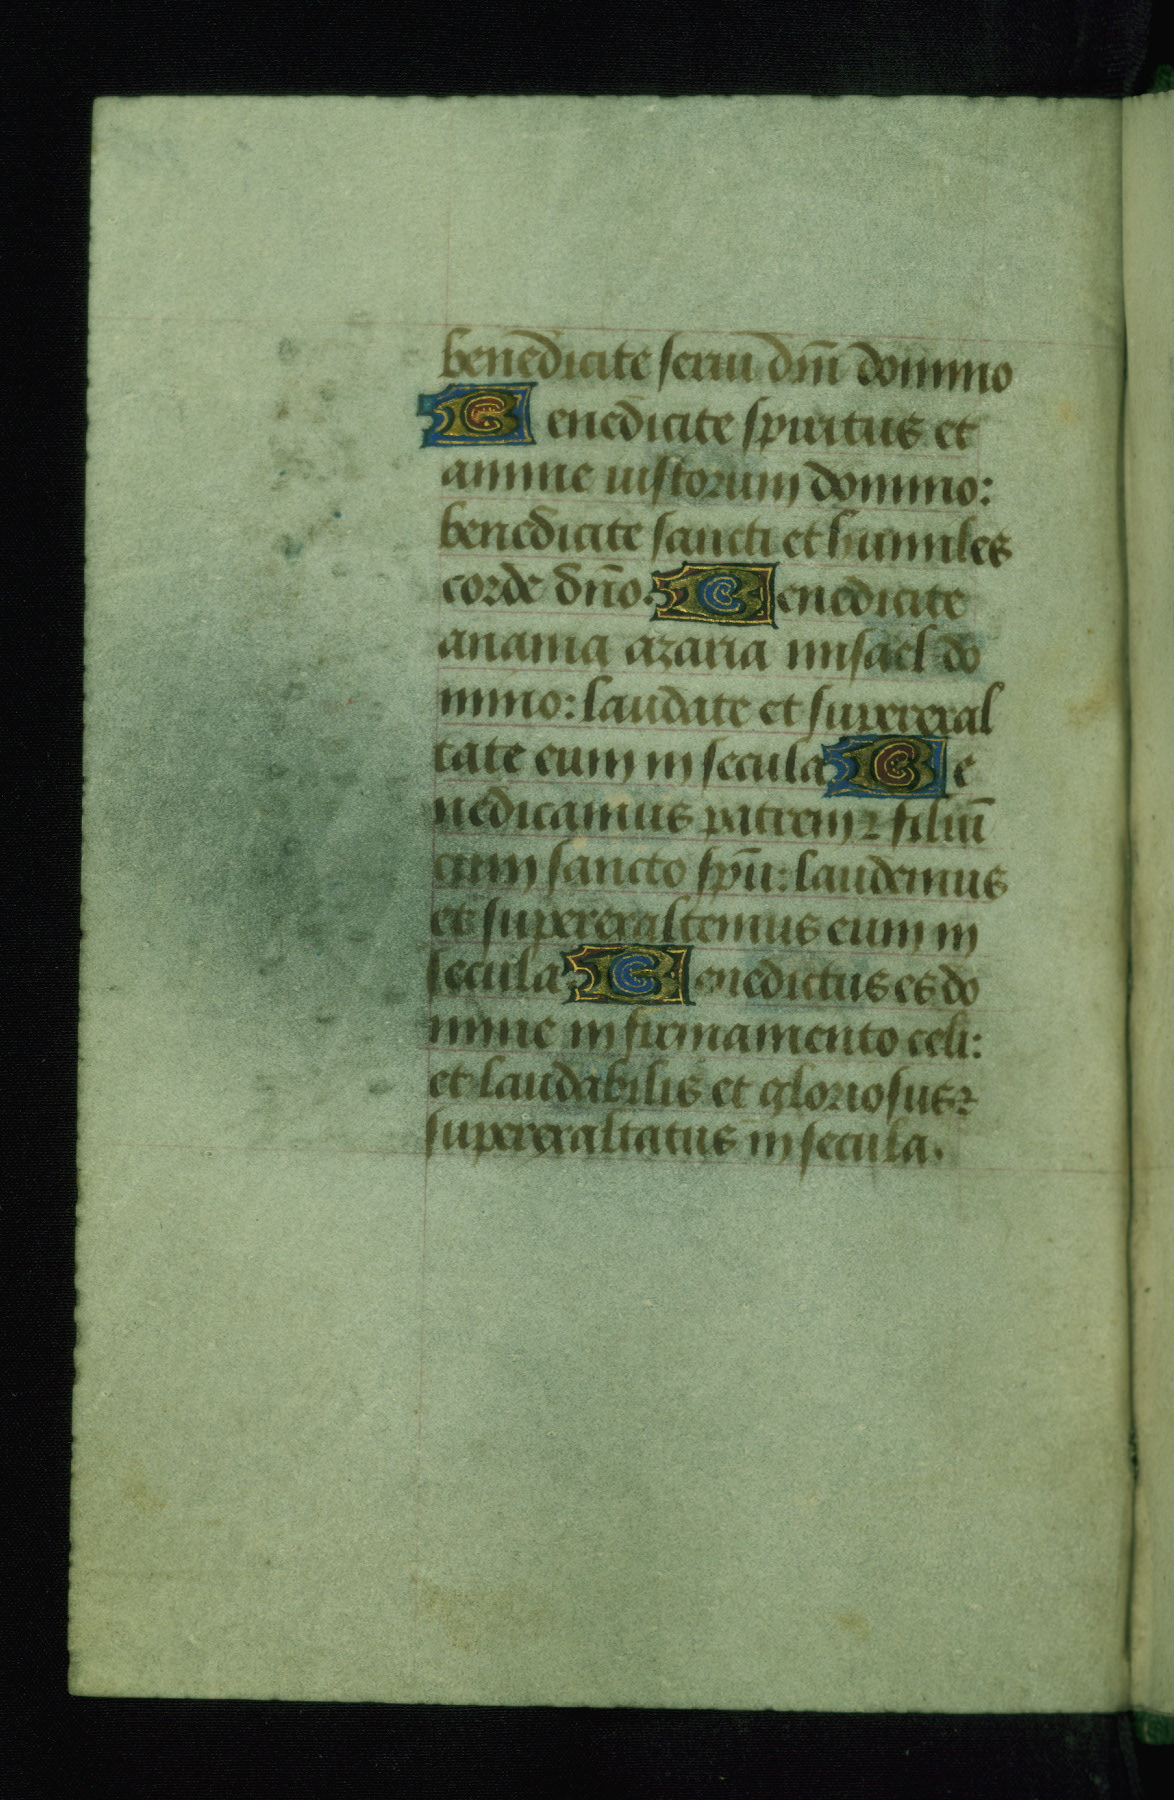 benedicite serui dn̄i domino
Benedicite spiritus et
anime iustorum domino:
benedicite sancti et humiles
corde dn̄o. Benedicite
anania azaria misael do
mino: laudate et superexal
tate eum in secula Be
nedicamus patrem ꝛ filiū
cum sancto sp̄u: laudemus
et superexaltemus eum in
secula Benedictus es do
mine in firmamento celi:
et laudabilis et gloriosus ꝛ
superexaltatus in secula.